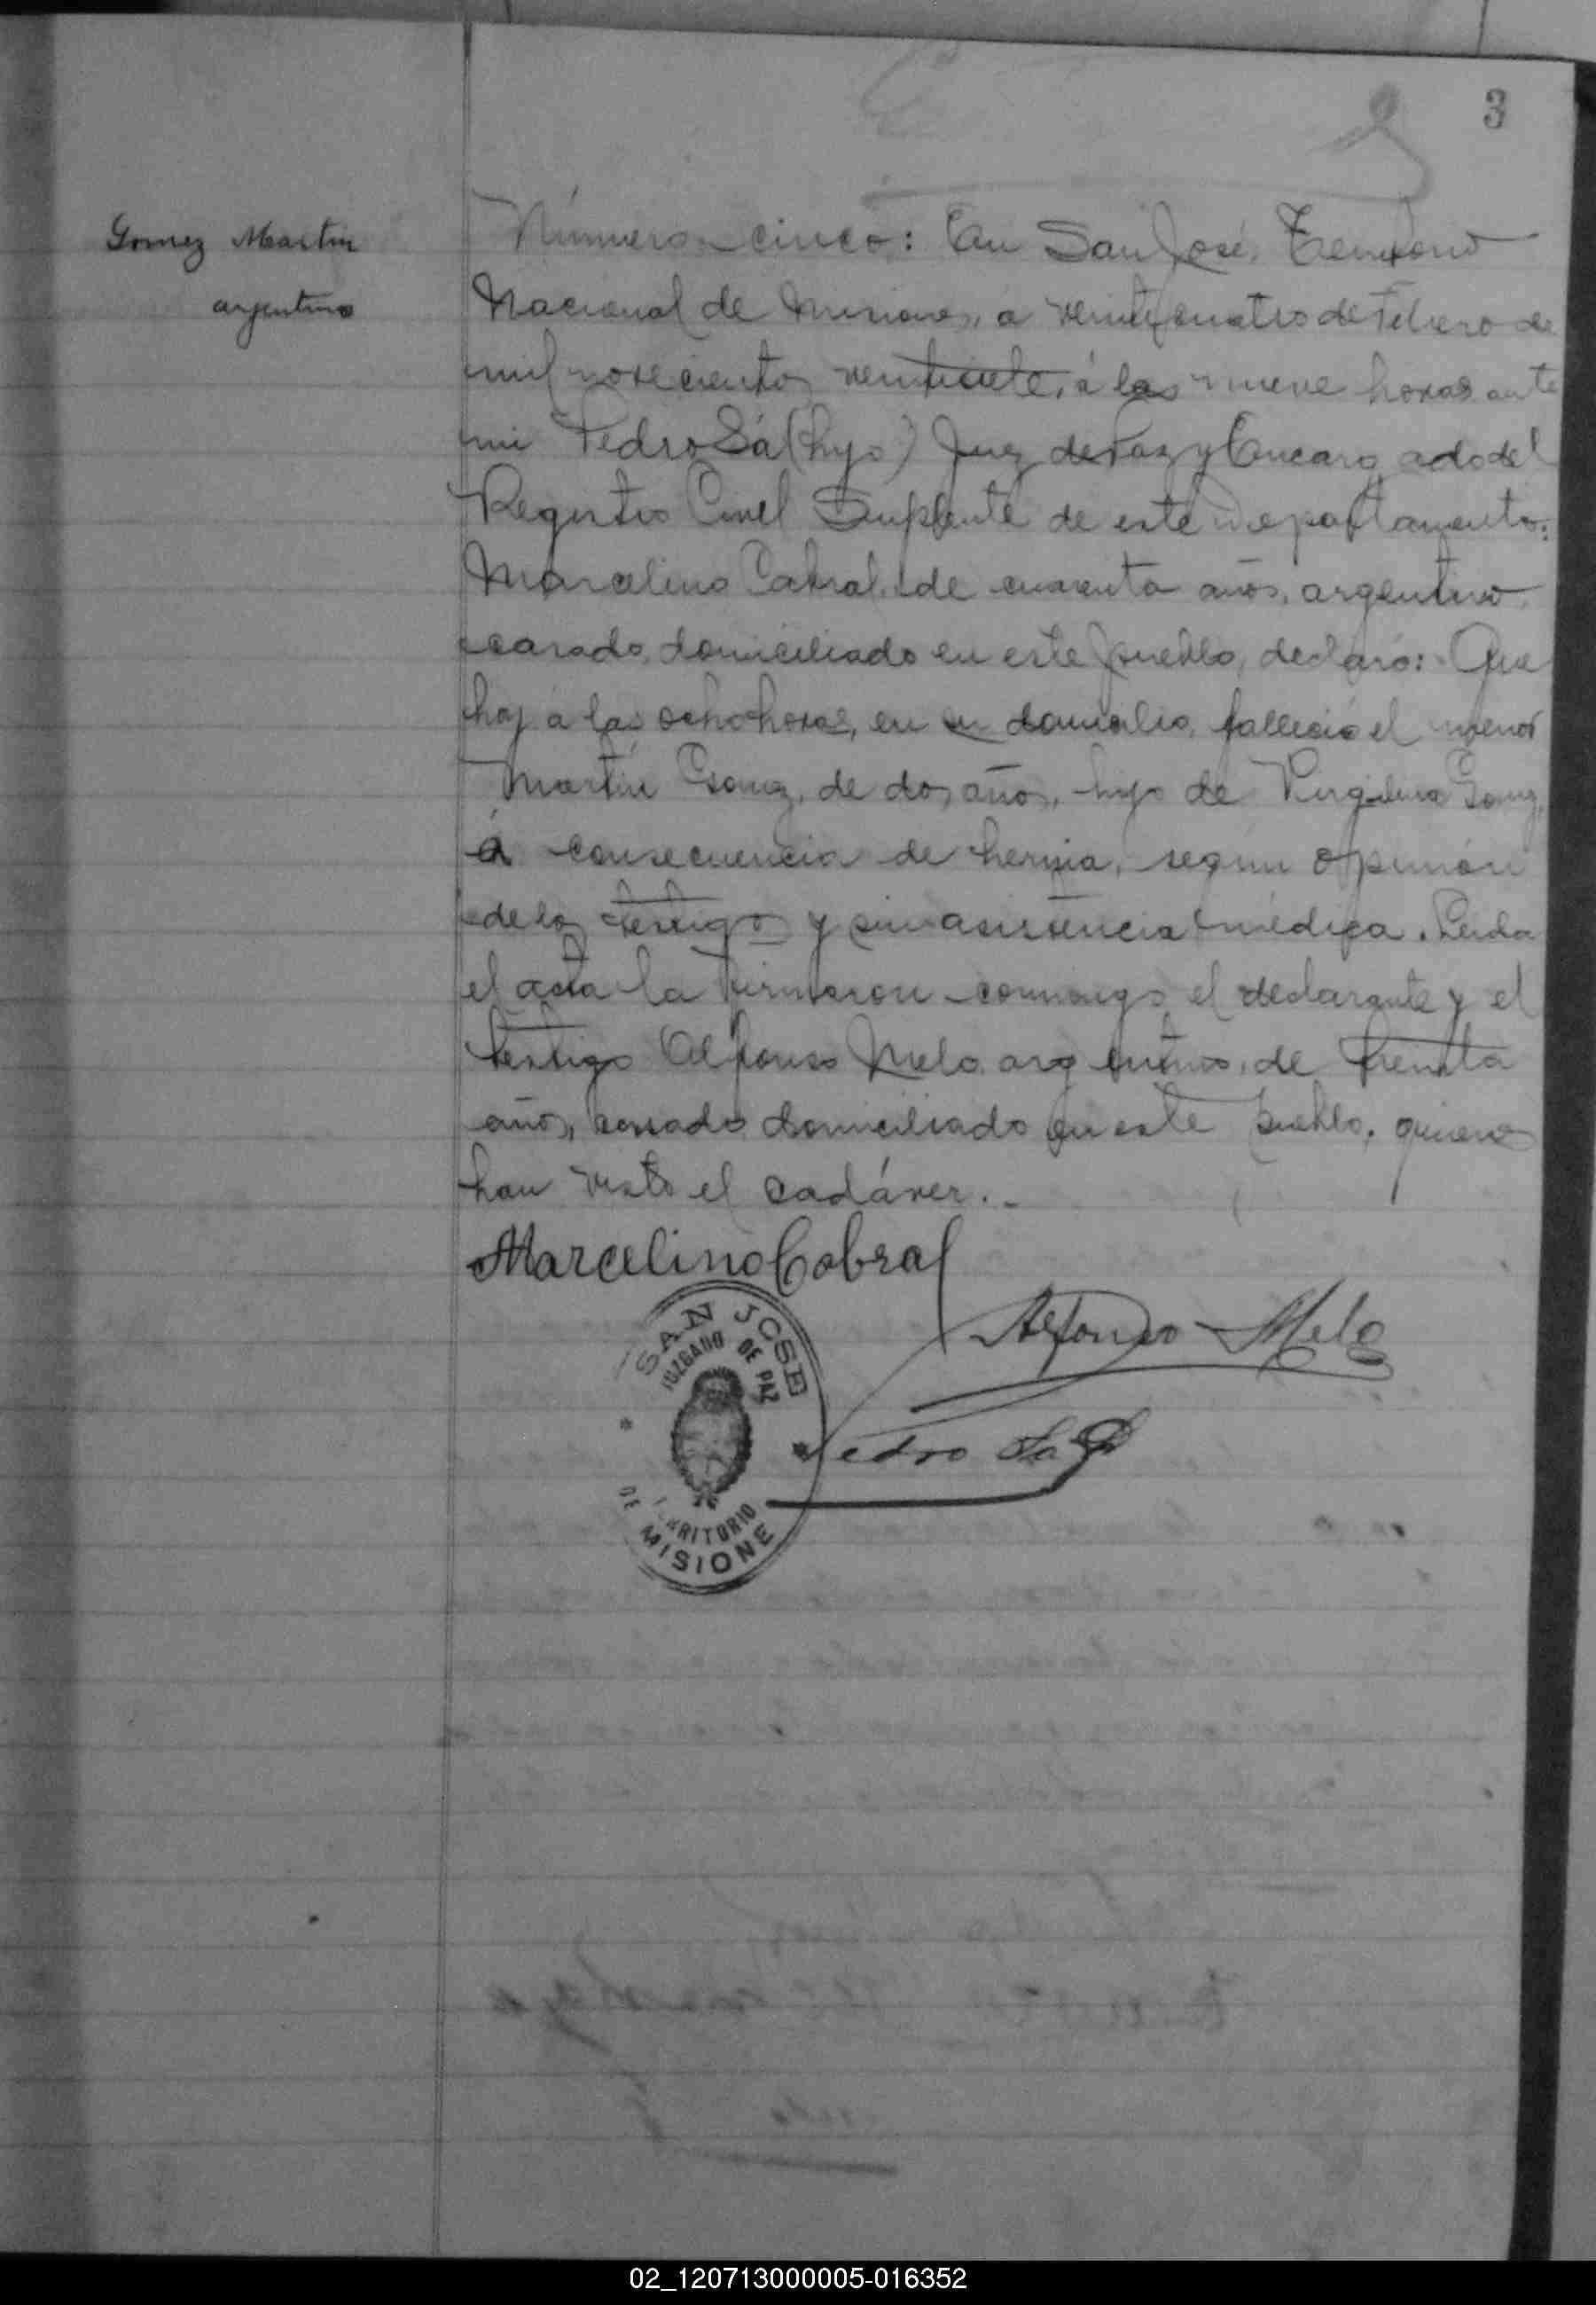 3
Gomez Martin
argentino
Número cinco: En San José, Territorio
Nacional de Misiones, a veinticuatro de Febrero de
mil novecientos veintisiete, á las nueve horas ante
mi Pedro Sá (hijo) Juez de Paz y Encargado del
Registro Civil Suplente de este Departamento:
Marcelino Cabral, de cuarenta años, argentino,
casado, domiciliado en este pueblo, declaró: Que
hoy á las ocho horas, en su domicilio, falleció el menor
Martin Gomez, de dos años, hijo de Virgilina Gomez,
á consecuencia de hernia, según opinión
de los testigos y sin asistencia médica. Leida
el acta la firmaron conmigo el declarante y el
testigo Alfonso Melo, argentino, de treinta
años, casado, domiciliado en este pueblo, quienes
han visto el cadáver.-
Marcelino Cabral
Alfonso Melo
Pedro Sa
SAN JOSE
JUZGADO DE PAZ
TERRITORIO
DE MISIONE
02_120713000005-016352